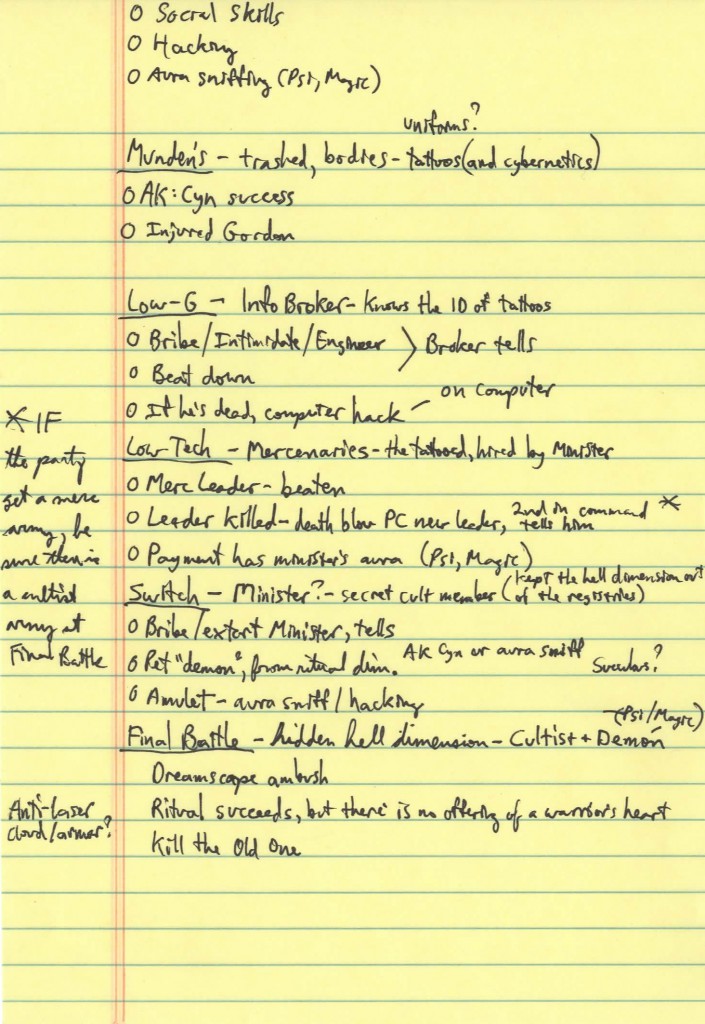 O Social Skills
O Hacking
O Aura sniffing (Psi, Magic)
uniforms?
Munden's - trashed, bodies - tattoos (and cybernetics)
O AK: Cyn success
O Injured Gordon
Low-G - Info Broker - Knows the ID of tattoos
O Bribe/Intimidate/Engineer > Broker tells
O Beat down
on computer
O If he's dead, computer hack -
Low Tech - Mercenaries - the tattooed, hired by Minister
O Merc Leader - beaten
O Leader killed - death blow PC new leader, 2nd in command tells him *
O Payment has minister's aura (Psi, Magic)
Switch - Minister? - secret cult member (kept the hell dimension out of the registries)
O Bribe/extort Minister, tells
O Pet "demon", from ritual dim. AK Cyn or aura sniff Succubus?
O Amulet - aura sniff/hacking
(Psi/Magic)
Final Battle - hidden hell dimension - Cultist + Demon
Dreamscape ambush
Ritual succeeds, but there is no offering of a warrior's heart
Kill the Old One
* IF
the party
get a merc
army, be
sure there is
a cultist
army at
Final Battle
Anti-laser
cloud/armor?